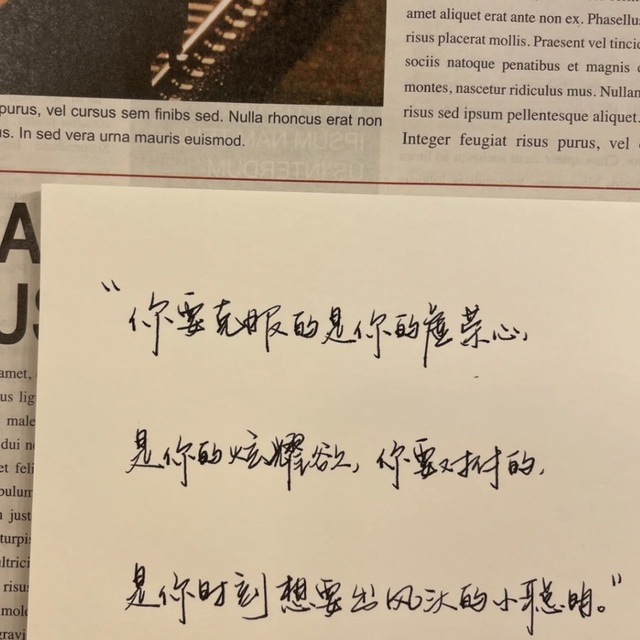 amet aliquet erat ante non ex. Phasellus
risus placerat mollis. Praesent vel tincid
sociis natoque penatibus et magnis
montes, nascetur ridiculus mus. Nullam
risus sed ipsum pellentesque aliquet.
Integer feugiat risus purus, vel
purus, vel cursus sem finibs sed. Nulla rhoncus erat non
In sed vera urna mauris euismod.
A
US
amet,
lig
male
dui
et feli
just
turpis
risu
“你要克服的是你的虚荣心，
是你的炫耀欲，你要对付的，
是你时刻想要出风头的小聪明。”